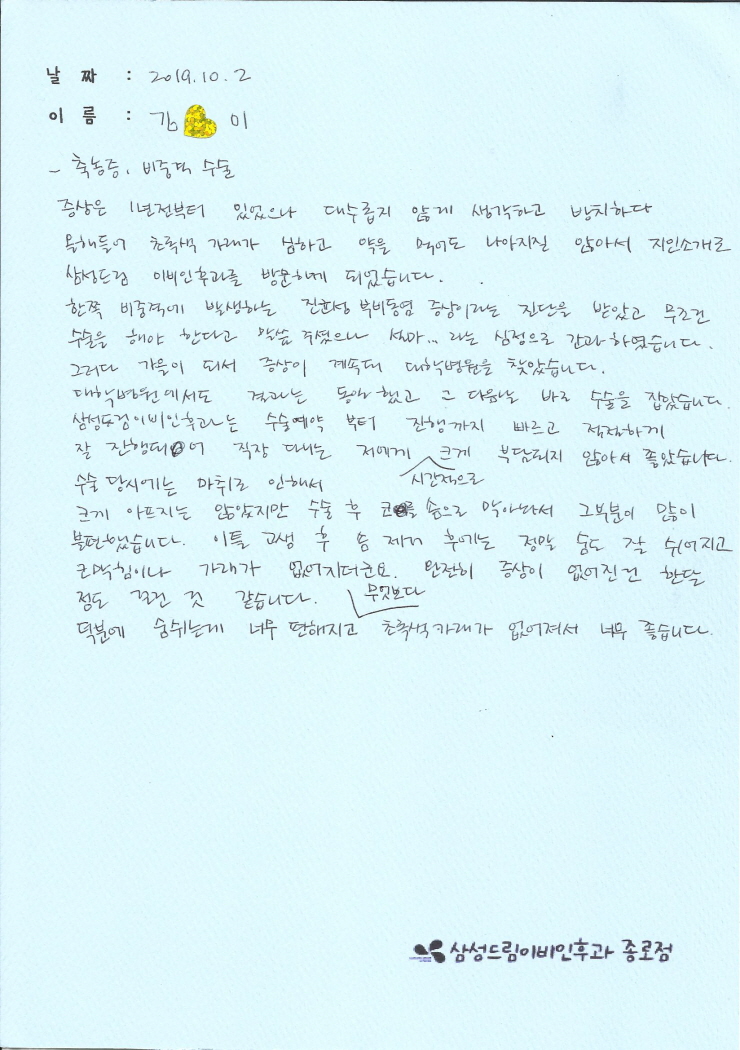 날 짜 : 2019.10.2
이 름 : 김 미
- 축농증, 비중격 수술
증상은 1년전부터 있었으나 대수롭지 않게 생각하고 방치하다
올해들어 초록색 가래가 심하고 약을 먹어도 나아지질 않아서 지인소개로
삼성드림 이비인후과를 방문하게 되었습니다.
한쪽 비중격에 발생하는 진균성 부비동염 증상이라는 진단을 받았고 무조건
수술을 해야 한다고 말씀 주셨으나 설마... 라는 심정으로 간과하였습니다.
그러다 가을이 되서 증상이 계속되 대학병원을 찾았습니다.
대학병원에서도 결과는 동일했고 그 다음날 바로 수술을 잡았습니다.
삼성드림이비인후과는 수술예약 부터 진행까지 빠르고 적절하게
잘 진행되어 직장 다니는 저에게 시간적으로 크게 부담되지 않아서 좋았습니다.
수술 당시에는 마취로 인해서
크게 아프지는 않았지만 수술 후 코를 솜으로 막아놔서 그부분이 많이
불편했습니다. 이틀 고생 후 솜 제거 후에는 정말 숨도 잘 쉬어지고
코막힘이나 가래가 없어지더군요. 완전히 증상이 없어진건 한달
정도 걸린 것 같습니다. 무엇보다
덕분에 숨쉬는게 너무 편해지고 초록색가래가 없어져서 너무 좋습니다.
삼성드림이비인후과 종로점